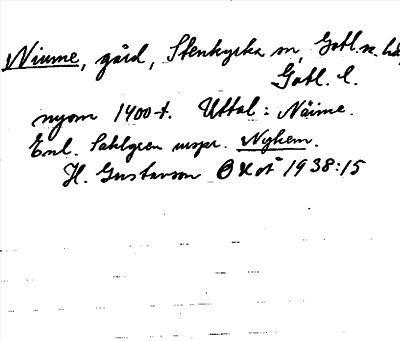 Niume, gård, Stenkyrka sn, Gotl. n. hd,
Gotl. l.
nyom 1400-t. Uttal: Näime.
Enl. Sahlgren urspr. Nyhem.
H. Gustavson 1938:15